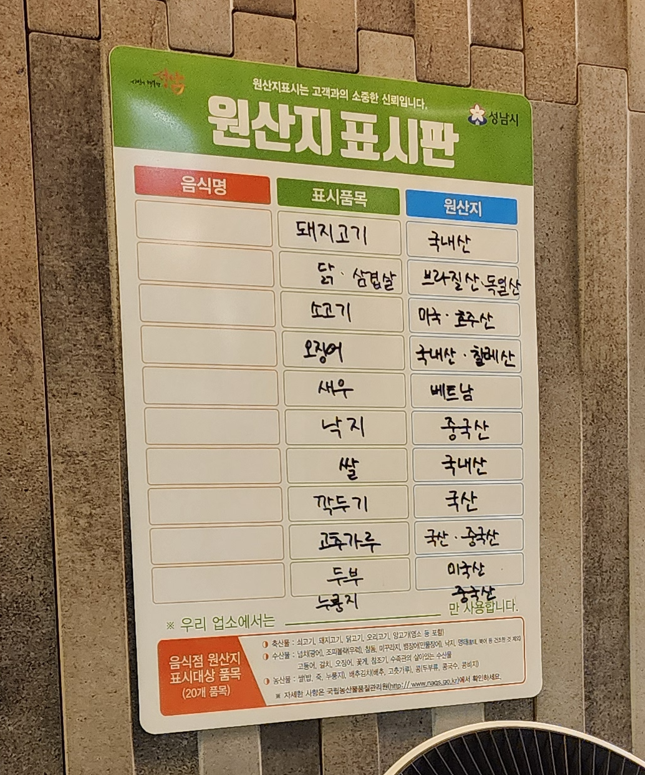 원산지표시는 고객과의 소중한 신뢰입니다.
성남시
원산지 표시판
음식명 표시품목 원산지
돼지고기 국내산
닭·삼겹살 브라질산·독일산
소고기 미국·호주산
오징어 국내산·칠레산
새우 베트남
낙지 중국산
쌀 국내산
깍두기 국산
고추가루 국산·중국산
두부 미국산
누룽지 중국산
※ 우리 업소에서는 만 사용합니다.
음식점 원산지
표시대상 품목
(20개 품목)
축산물 : 쇠고기, 돼지고기, 닭고기, 오리고기, 양고기(염소 등 포함)
수산물 : 넙치(광어), 조피볼락(우럭), 참돔, 미꾸라지, 뱀장어(민물장어), 낙지, 명태(황태, 북어 등 건조한 것 제외)
고등어, 갈치, 오징어, 꽃게, 참조기, 수족관의 살아있는 수산물
농산물 : 쌀(밥, 죽, 누룽지), 배추김치(배추, 고춧가루), 콩(두부류, 콩국수, 콩비지)
※ 자세한 사항은 국립농산물품질관리원(http://www.naqs.go.kr)에서 확인하세요.